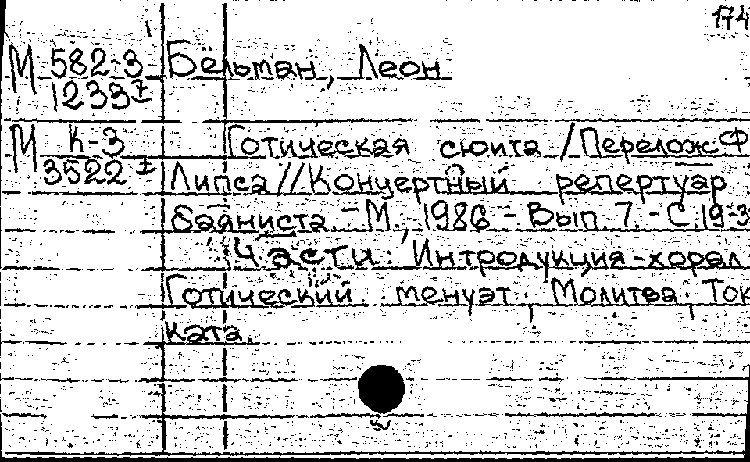 174
М 582-3 Бёльман, Леон
1233 I
М К-3 Готическая сюита /Перелож.Ф
3522 I Липса//Концертный репертуар
баяниста. - М., 1986 - Вып. 7. - С.19-3
Части: Интродукция-хорал
Готический менуэт; Молитва; Ток
ката.